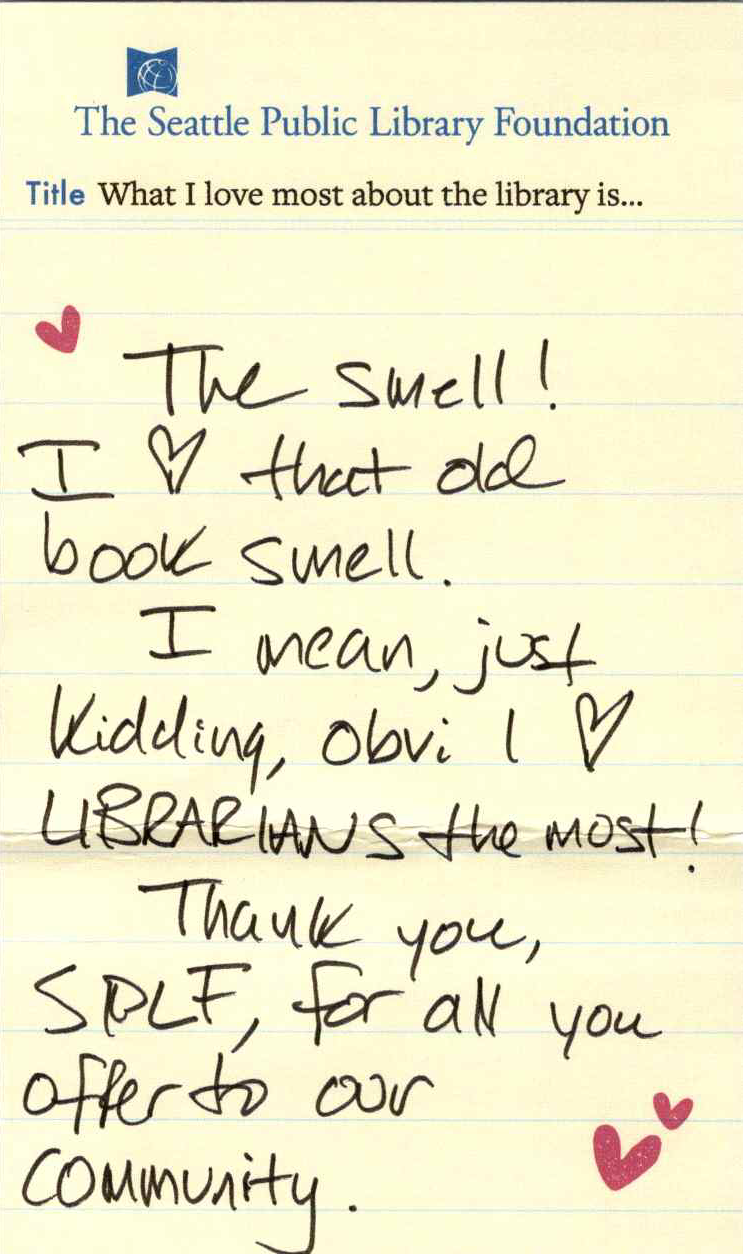 The Seattle Public Library Foundation
Title What I love most about the library is...
The smell!
I ♡ that old
book smell.
I mean, just
kidding, obvi I ♡
LIBRARIANS the most!
Thank you,
SPLF, for all you
offer to our
community.